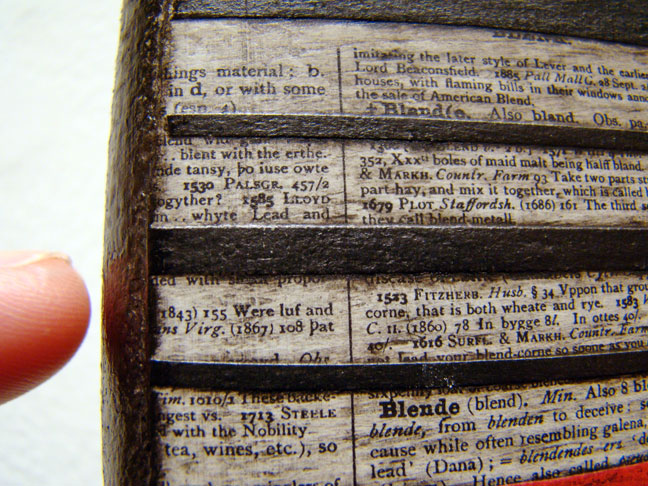 BLAND.
imitating the later style of Lever and the earlier
Lord Beaconsfield. 1885 Pall Mall G. 28 Sept.
houses, with flaming bills in their windows
the sale of American Blend.
+ Blandfo. Also bland. Obs. pa.
material: b.
in d, or with some
(esp. 4)
352, Xxxᵗⁱ boles of maid malt being halff bland.
& MARKH. Countr. Farm 93 Take two parts
part hay, and mix it together, which is called
1679 PLOT Staffordsh. (1686) 161 The third
they call blend-metall.
blend with
.. blent with the erthe.
tansy, þo iuse owte
1530 PALSGR. 457/2
1585 LLOYD
in .. whyte Lead and
1523 FITZHERB. Husb. § 34 Vppon that
corne, that is both wheate and rye. 1583
C. 11. (1860) 78 In bygge 8l. In ottes 40/.
40/.—1616 SURFL. & MARKH. Countr. Farm
lead your blend-corne so soone as you
with
1843) 155 Were luf and
Virg. (1867) 108 þat
Obs
1010/1 These
vs. 1713 STEELE
with the Nobility
tea, wines, etc.), so
Blende (blend). Min. Also 8
blende, from blenden to deceive:
cause while often resembling galena,
lead' (Dana); = blendendes erz
Hence also called